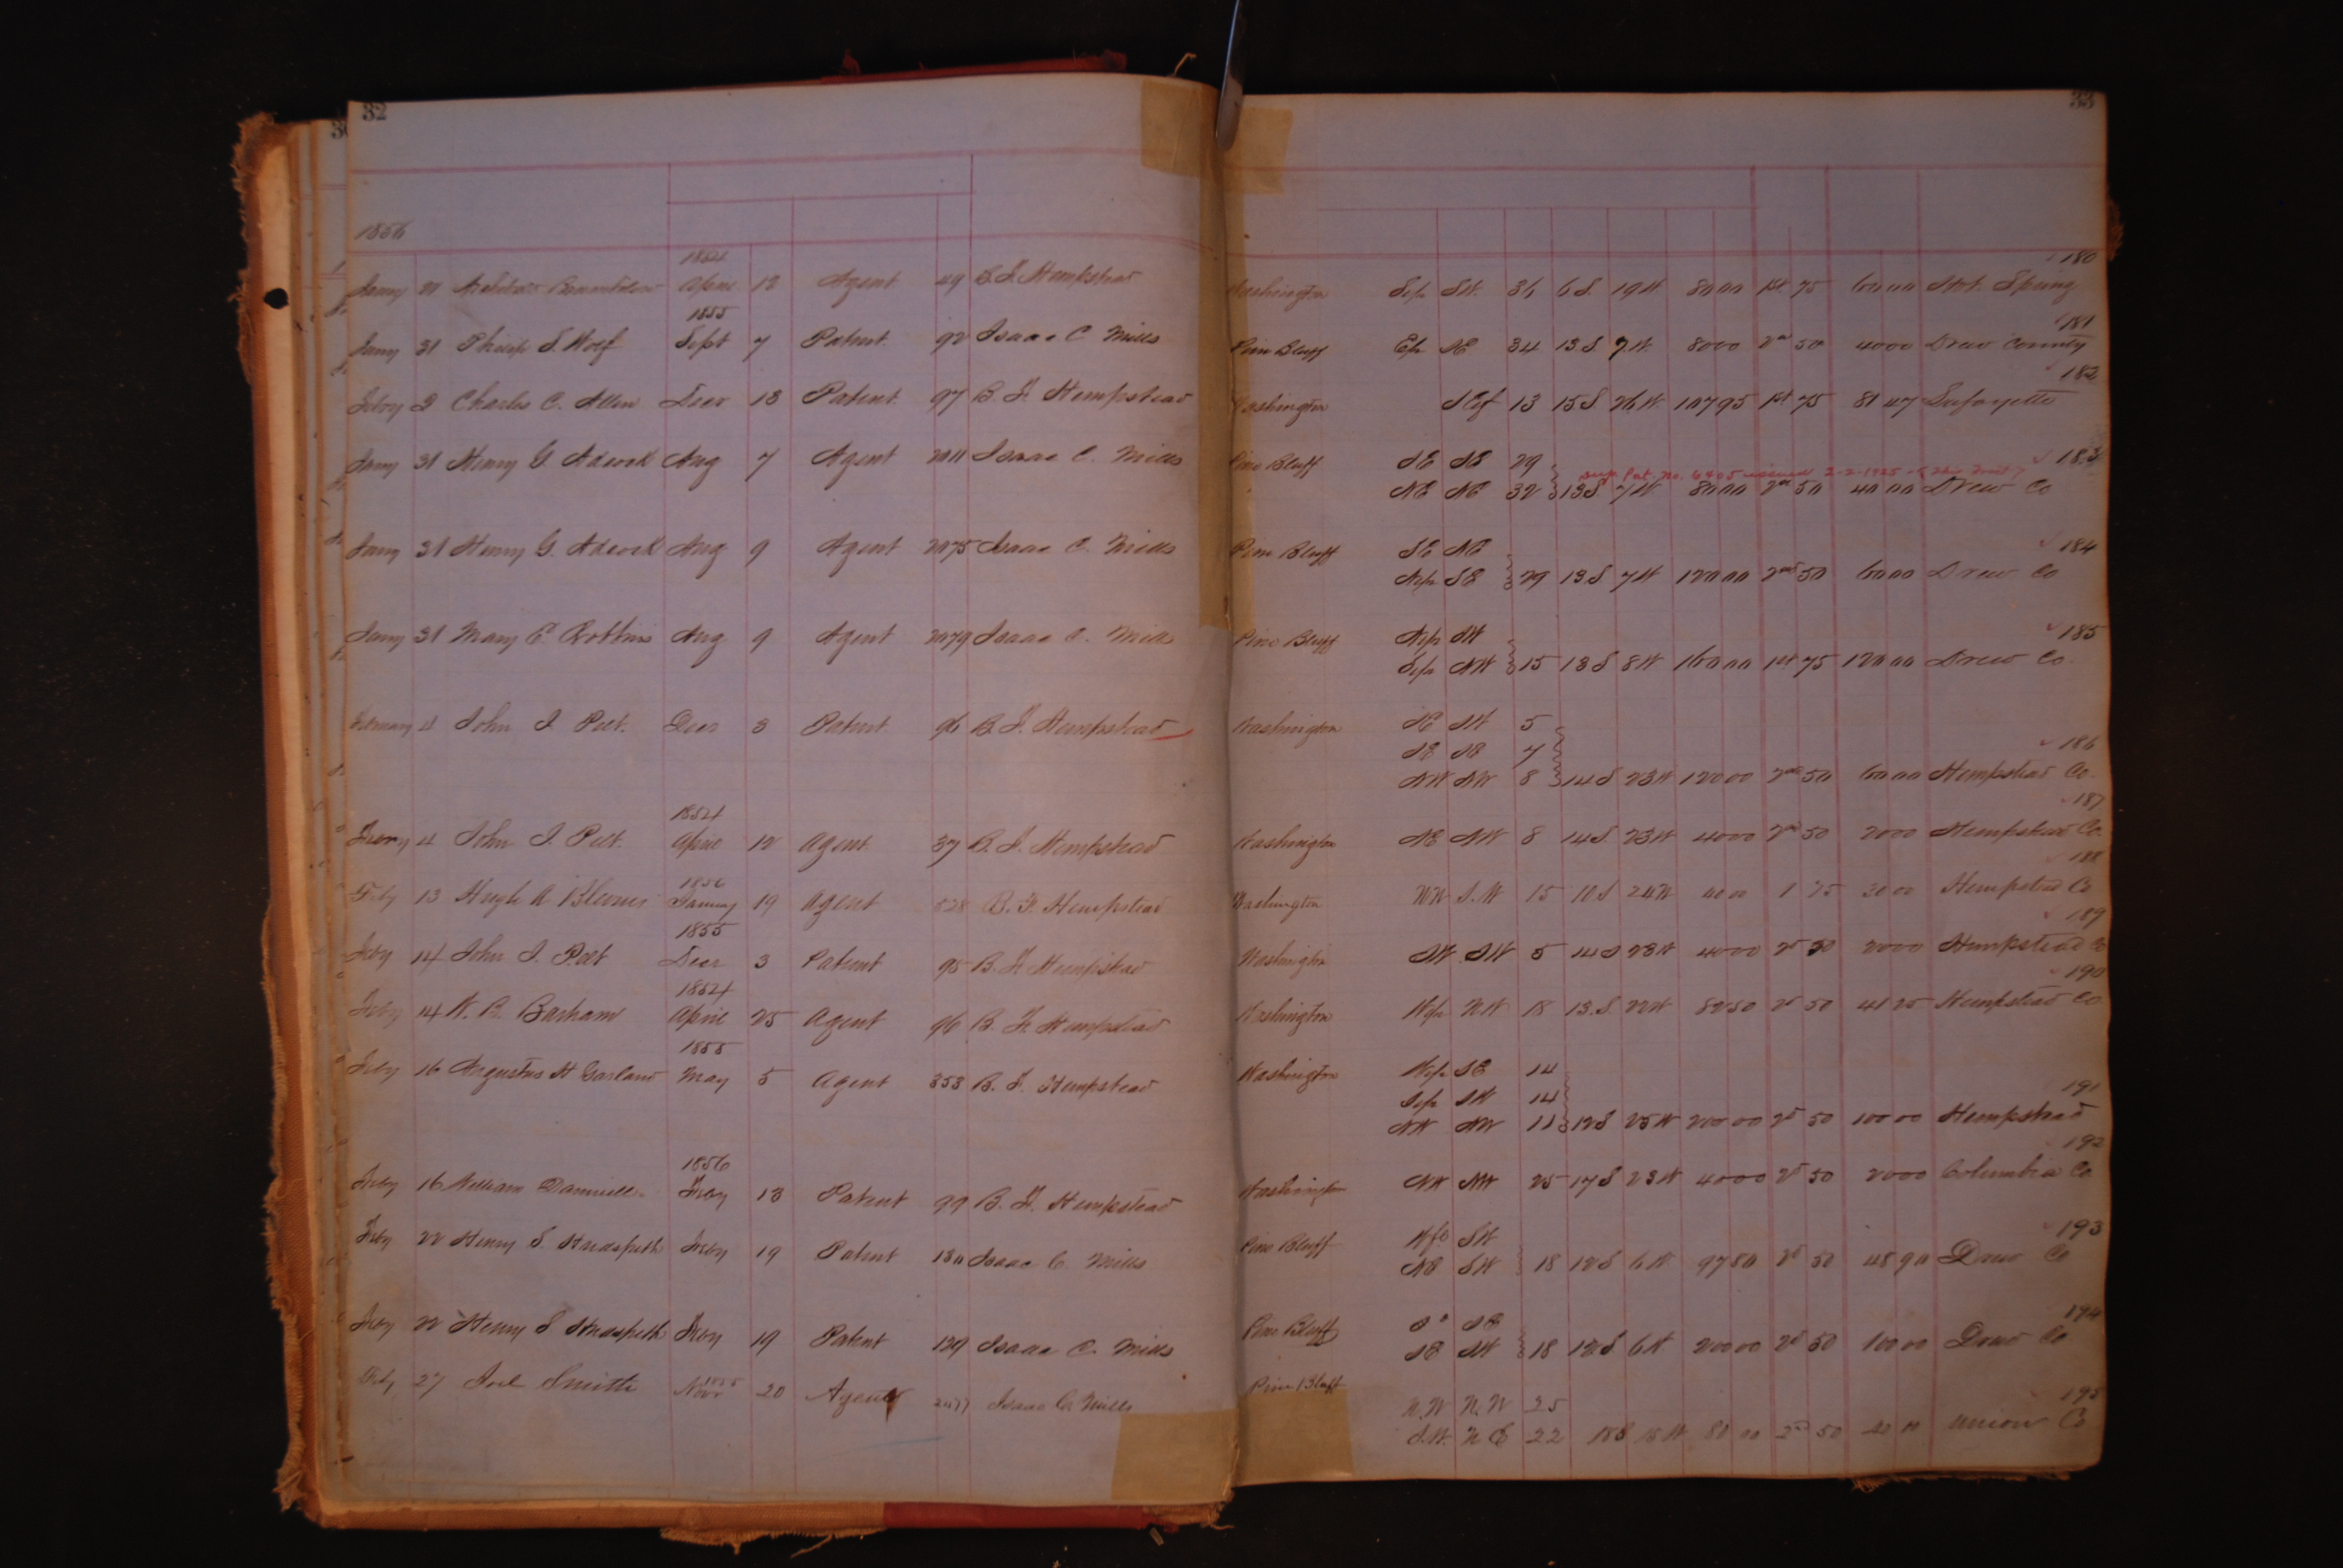 32 33
1856
1854 180
Jany 21 April 12 Agent 49 B. F. Hempstead Washington S/p SW. 36 6 S. 19 W 80 00 1st 75 60 00 Hot Spring
1855 181
Jany 31 Philip S. Wolf Sept 7 Patent. 92 Isaac C Mills Pine Bluff E/p SE 34 13 S. 7 W. 80 00 2nd 50 40 00 Drew County
182
Feby 2 Charles C. Allen Decr 13 Patent 97 B. F. Hempstead Washington 13 15 S 26 W. 107 95 1st 75 81 47 Lafayette
Jany 31 Henry G. Adcock Aug 7 Agent 2011 Isaac C. Mills Pine Bluff SE SE 29 183
Sup. Pat. No. 6405 issued 2-2-1925
NE NE 32 13 S 7 W 80 00 2nd 50 40 00 Drew Co
Jany 31 Henry G. Adcock Aug 9 Agent 2075 Isaac C. Mills Pine Bluff SE NE 184
N/p SE 29 13 S 7 W 120 00 2nd 50 60 00 Drew Co
Jany 31 Mary E. Robbins Aug 9 Agent 2079 Isaac C. Mills Pine Bluff N/p SW 185
S/p NW 15 13 S 8 W 160 00 1st 75 120 00 Drew Co.
February 4 John J. Pelt. Decr 3 Patent 96 B. F. Hempstead Washington SE SW 5
SE SE 7 186
NW NW 8 14 S 23 W 120 00 2nd 50 60 00 Hempstead Co.
1854 187
Feby 4 John J. Pelt. April 12 Agent. 37 B. F. Hempstead Washington NE NW 8 14 S 23 W 40 00 2nd 50 20 00 Hempstead Co.
1856 188
Feby 13 Hugh A Blevins January 19 Agent 528 B. F. Hempstead Washington NW S.W 15 10 S 24 W 40 00 1 75 30 00 Hempstead Co
1855 189
Feby 14 John J. Pelt Decr 3 Patent 95 B. F. Hempstead Washington SW SW 5 14 S 23 W 40 00 2d 50 20 00 Hempstead Co
1854 190
Feby 14 W. B. Barham April 25 Agent 96 B. F. Hempstead Washington W/p NW 18 13. S. 22 W 82 50 2d 50 41 25 Hempstead Co
1855
Feby 16 Augustus H Garland May 5 Agent 353 B. F. Hempstead Washington W/p SE 14
S/p SW 14 191
NW NW 11 12 S 25 W 200 00 2d 50 100 00 Hempstead
1856 192
Feby 16 William Feby 13 Patent 99 B. F. Hempstead Washington NW NW 25 17 S 23 W 40 00 2d 50 20 00 Columbia Co
Feby 22 Henry S. Hudspeth Feby 19 Patent 130 Isaac C. Mills Pine Bluff W/p SW 193
NE SW 18 12 S 6 W 97 80 2d 50 48 90 Drew Co
Feby 22 Henry S Hudspeth Feby 19 Patent 129 Isaac C. Mills Pine Bluff SE 194
SE SW 18 12 S 6 W 200 00 2d 50 100 00 Drew Co
Feby 27 Joel Smith Novr 1855 20 Agent 2477 Isaac C. Mills Pine Bluff N.W N.W 25 195
S.W. N E 22 18 S 15 W 80 00 2d 50 40 00 Union Co